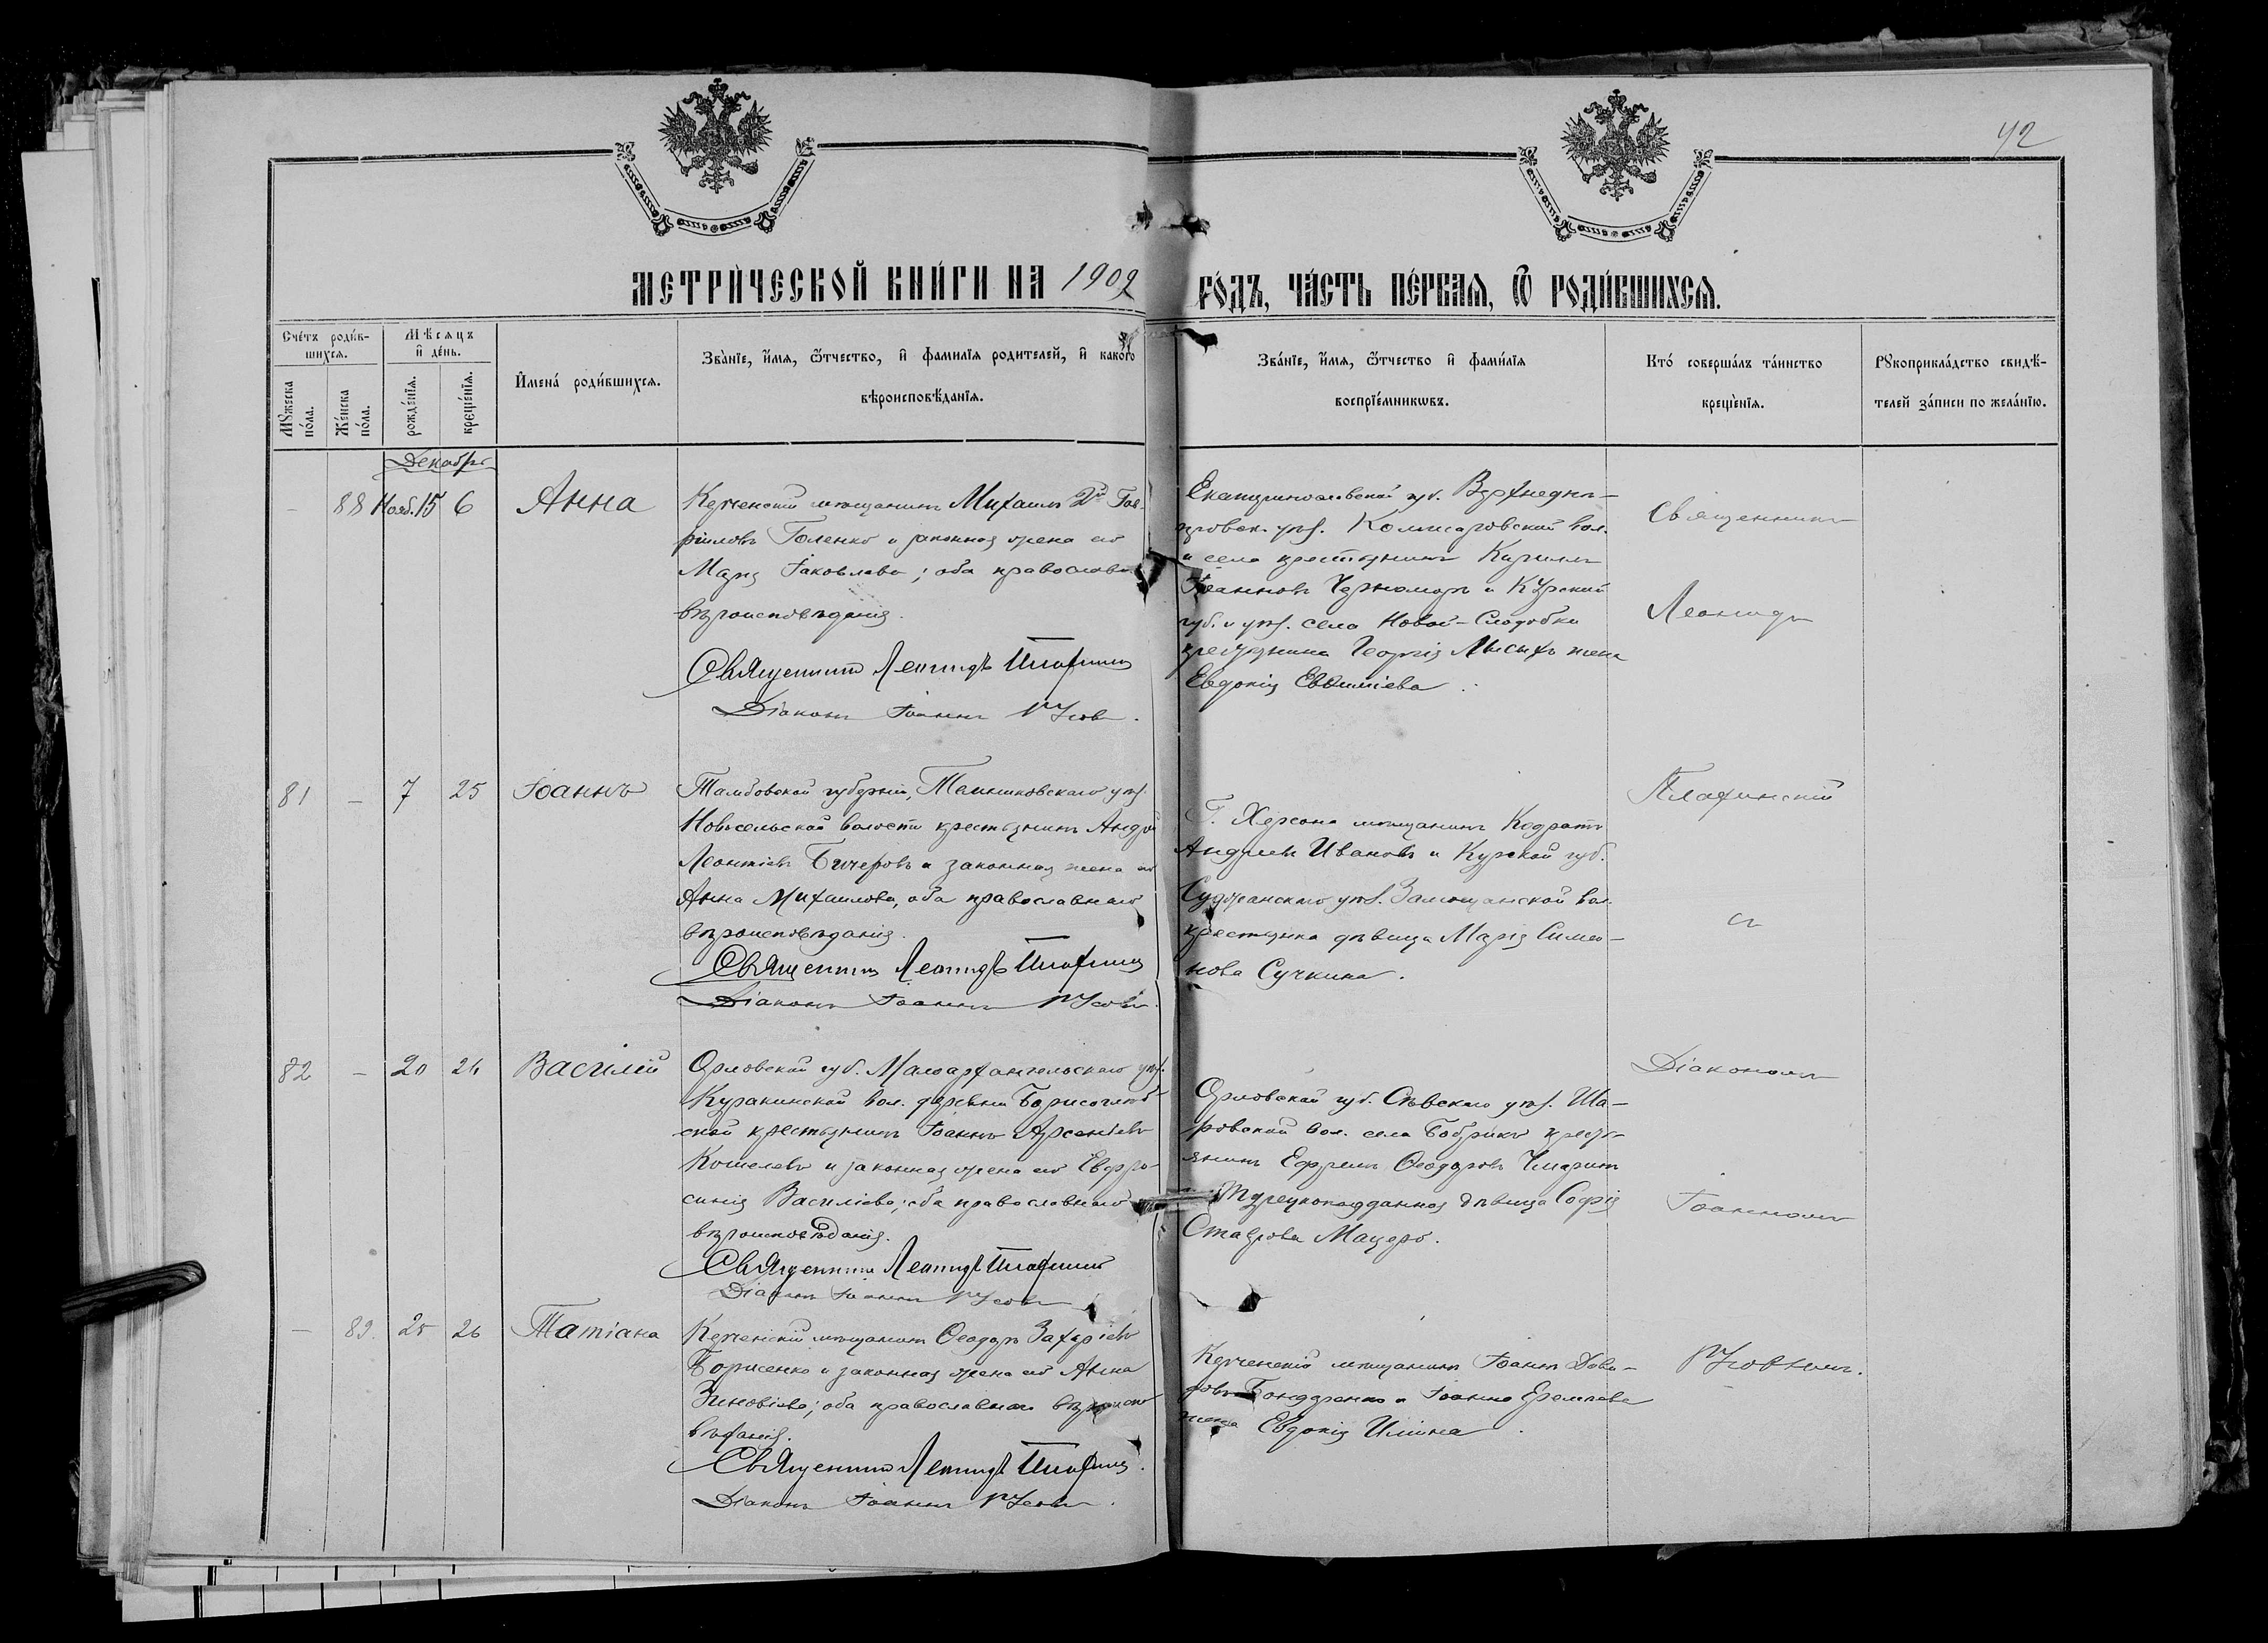 42
МЕТРИ́ЧЕСКОЙ КНИ́ГИ НА 1902 ГО́ДЪ, ЧА́СТЬ ПЕ́РВАЯ, Ѡ РОДИ́ВШИХСЯ.
Сче́тъ роди́в-
шихся.
Мꙋ́жеска по́ла.
Же́нска по́ла.
Мѣ́сяцъ
и҆ де́нь.
рожде́нїя.
креще́нїя.
И҆мена̀ роди́вшихся.
Зва́нїе, и҆́мя, ѻ҆́тчество, и҆ фамилїя родителей, и҆ како́го
вѣроисповѣ́данїя.
Зва́нїе, и҆́мя, ѻ҆́тчество и҆ фами́лїя
воспрїе́мникѡвъ.
Кто́ соверша́лъ та́инство
креще́нїя.
Рꙋкоприкла́дство свидѣ́-
телей за́писи по жела́нїю.
Декабрь
- 88 Нояб. 15 6 Анна
Керченскій мѣщанинъ Михаилъ 2й Гав-
риловъ Голенко и законная жена его
Марія Іаковлева; оба православн
вѣроисповѣданія.
Священникъ Леонидъ
Діаконъ Іоаннъ Усовъ.
Екатеринославской губ. Верхнедне-
провск. уѣз. Комисаровской вол.
и села крестьянинъ Кириллъ
Іоанновъ Черноморъ и Курской
губ. и уѣз. села Новой-Слободки
крестьянина Георгія Лысыхъ жена
Евдокія Евѳиміева.
Священникъ
Леонидъ
81 - 7 25 Іоаннъ
Тамбовской губерніи, Темниковскаго уѣз.
Новосельской волости крестьянинъ Андрей
Леонтіевъ Бичеровъ и законная жена его
Анна Михаилова, оба православнаго
вѣроисповѣданія.
Священникъ Леонидъ
Діаконъ Іоаннъ Усовъ.
Г. Херсона мѣщанинъ Кодратъ
Андреевъ Ивановъ и Курской губ.
Суджанскаго уѣз. Замощанской вол.
крестьянка дѣвица Марія Симео-
нова Сучкина.
съ
82 - 20 26 Василій
Орловской губ. Малоархангельскаго уѣз.
Куракинской вол. деревни Борисоглѣб-
ской крестьянинъ Іоаннъ Арсеніевъ
Кошелевъ и законная жена его Евфро-
синія Василіева; оба православнаго
вѣроисповѣданія.
Священникъ Леонидъ
Діаконъ Іоаннъ Усовъ
Орловской губ. Сѣвскаго уѣз. Ша-
ровской вол. села Бобрикъ кресть-
янинъ Ефремъ Ѳеодоровъ
Турецкоподданная дѣвица Софія
Ставрова Мацеро.
Діакономъ
Іоанномъ
- 89. 25 26 Татіана
Керченскій мѣщанинъ Ѳеодоръ Захаріевъ
Борисенко и законная жена его Анна
Зиновіева; оба православнаго вѣроиспо
вѣданія.
Священникъ Леонидъ
Діаконъ Іоаннъ Усовъ.
Керченскій мѣщанинъ Іоаннъ Дави-
довъ Бондаренко и Іоанна Еремѣева
жена Евдокія Ильина.
Усовымъ.